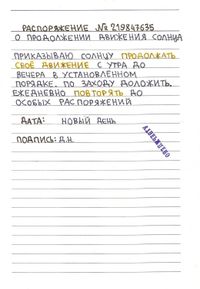 РАСПОРЯЖЕНИЕ № 219847635
О ПРОДОЛЖЕНИИ ДВИЖЕНИЯ СОЛНЦА
ПРИКАЗЫВАЮ СОЛНЦУ ПРОДОЛЖАТЬ
СВОЁ ДВИЖЕНИЕ С УТРА ДО
ВЕЧЕРА В УСТАНОВЛЕННОМ
ПОРЯДКЕ. ПО ЗАХОДУ ДОЛОЖИТЬ.
ЕЖЕДНЕВНО ПОВТОРЯТЬ ДО
ОСОБЫХ РАСПОРЯЖЕНИЙ
ДАТА: НОВЫЙ ДЕНЬ
ПОДПИСЬ: Д.Н.